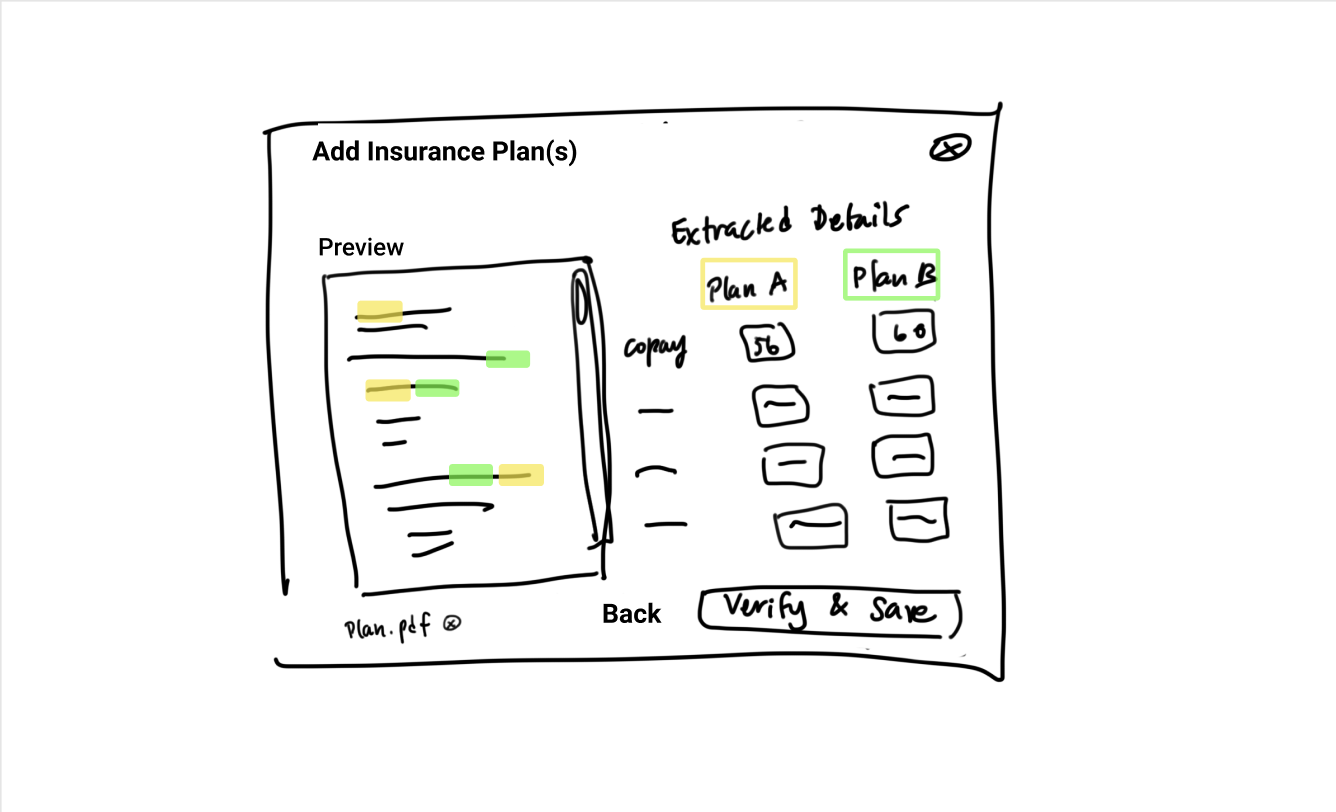 Add Insurance Plan(s)
Extracted Details
Preview
Plan A Plan B
copay 56 60
Plan.pdf
Back
Verify & Save